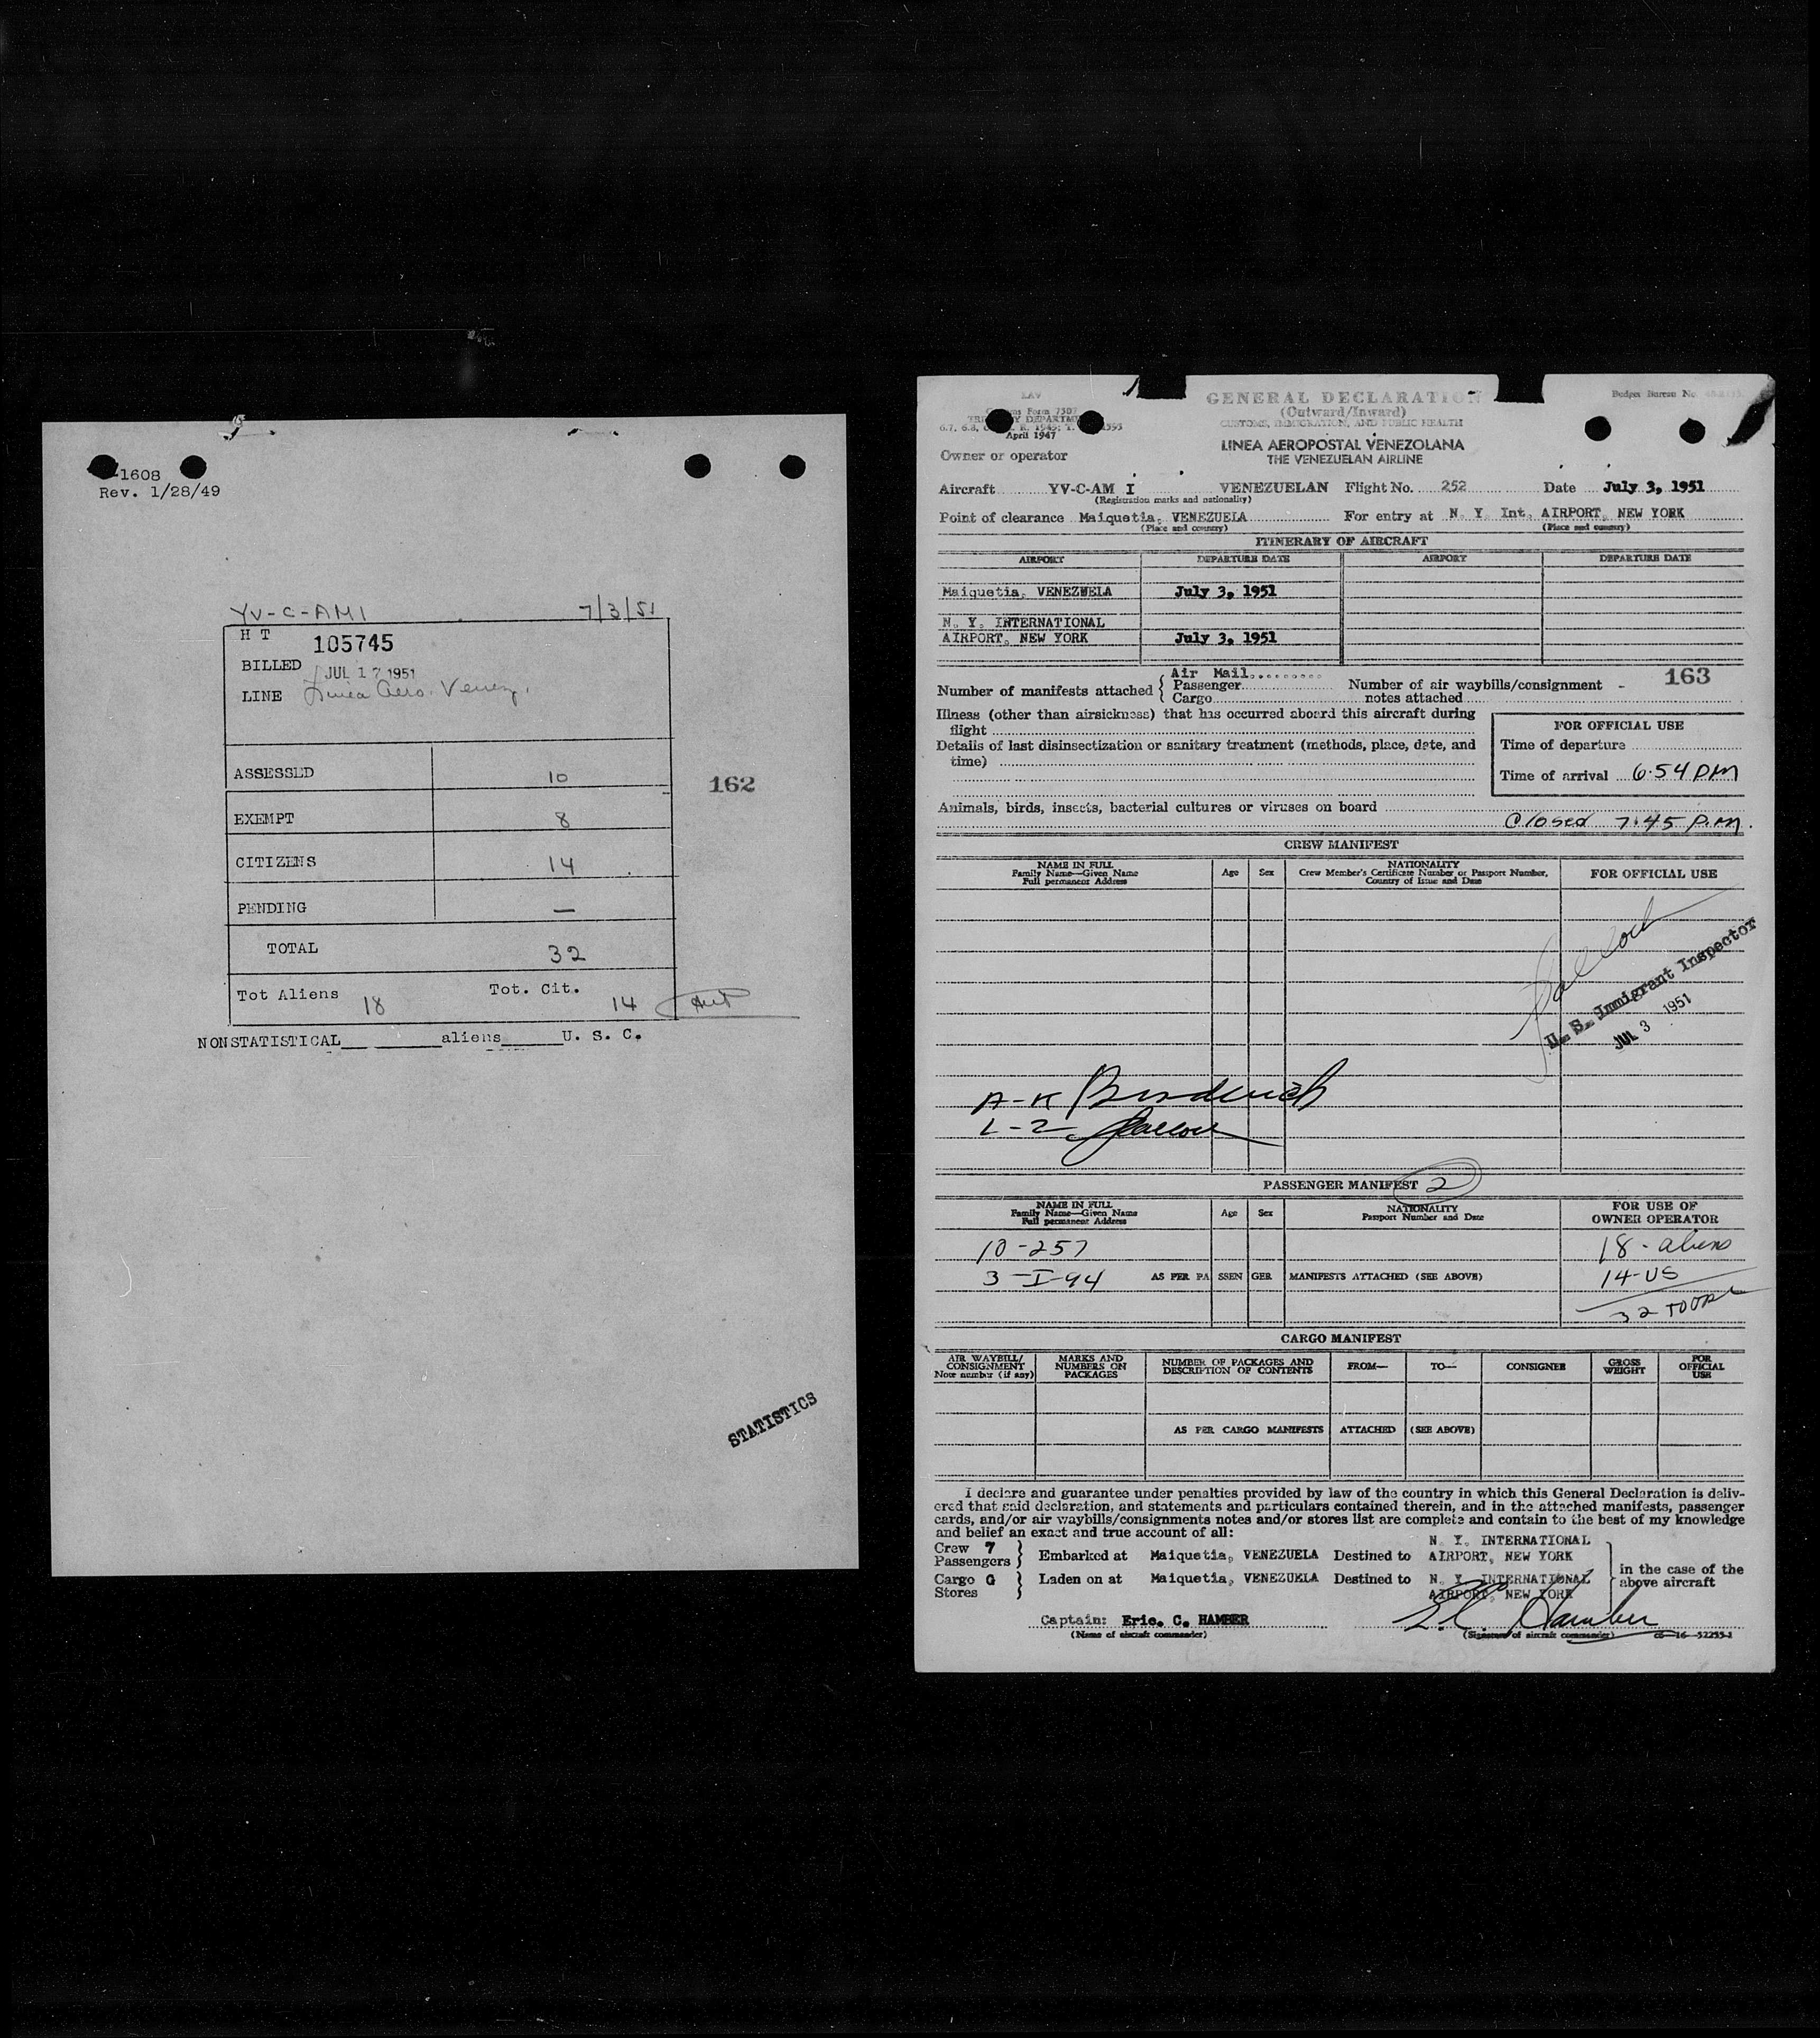 -1608
Rev. 1/28/49
YV-C-AMI 7/3/51
H T 105745
BILLED JUL 17 1951
LINE Linea Aero. Venez.
ASSESSED 10
EXEMPT 8
CITIZENS 14
PENDING —
TOTAL 32
Tot Aliens 18 Tot. Cit. 14
NONSTATISTICAL aliens U. S. C.
162
STATISTICS
LAV
Form 7507
April 1947
GENERAL DECLARATION
(Outward/Inward)
CUSTOMS, IMMIGRATION, AND PUBLIC HEALTH
Budget Bureau No.
LINEA AEROPOSTAL VENEZOLANA
THE VENEZUELAN AIRLINE
Owner or operator
Aircraft YV-C-AM I VENEZUELAN Flight No. 252 Date July 3, 1951
(Registration marks and nationality)
Point of clearance Maiquetia, VENEZUELA For entry at N. Y. Int. AIRPORT, NEW YORK
(Place and country) (Place and country)
ITINERARY OF AIRCRAFT
AIRPORT DEPARTURE DATE AIRPORT DEPARTURE DATE
Maiquetia, VENEZUELA July 3, 1951
N. Y. INTERNATIONAL
AIRPORT, NEW YORK July 3, 1951
163
Number of manifests attached { Air Mail.........
Passenger
Cargo
Number of air waybills/consignment -
notes attached
Illness (other than airsickness) that has occurred aboard this aircraft during
flight
Details of last disinsectization or sanitary treatment (methods, place, date, and
time)
FOR OFFICIAL USE
Time of departure
Time of arrival 6:54 PM
Animals, birds, insects, bacterial cultures or viruses on board
Closed 7:45 P.M.
CREW MANIFEST
NAME IN FULL
Family Name—Given Name
Full permanent Address
Age
Sex
NATIONALITY
Crew Member's Certificate Number or Passport Number,
Country of Issue and Date
FOR OFFICIAL USE
U. S. Immigrant Inspector
JUL 3 1951
A-K Broderick
L-Z
PASSENGER MANIFEST 2
NAME IN FULL
Family Name—Given Name
Full permanent Address
Age
Sex
NATIONALITY
Passport Number and Date
FOR USE OF
OWNER OPERATOR
10-257 18-aliens
3-I-94 AS PER PASSENGER MANIFESTS ATTACHED (SEE ABOVE) 14-US
32
CARGO MANIFEST
AIR WAYBILL/
CONSIGNMENT
Note number (if any)
MARKS AND
NUMBERS ON
PACKAGES
NUMBER OF PACKAGES AND
DESCRIPTION OF CONTENTS
FROM—
TO—
CONSIGNER
GROSS
WEIGHT
FOR
OFFICIAL
USE
AS PER CARGO MANIFESTS ATTACHED (SEE ABOVE)
I declare and guarantee under penalties provided by law of the country in which this General Declaration is deliv-
ered that said declaration, and statements and particulars contained therein, and in the attached manifests, passenger
cards, and/or air waybills/consignments notes and/or stores list are complete and contain to the best of my knowledge
and belief an exact and true account of all:
Crew 7
Passengers } Embarked at Maiquetia, VENEZUELA Destined to N. Y. INTERNATIONAL
AIRPORT, NEW YORK
Cargo G
Stores } Laden on at Maiquetia, VENEZUELA Destined to N. Y. INTERNATIONAL
AIRPORT, NEW YORK
in the case of the
above aircraft
Captain: Eric. C. HAMBER E. C. Hamber
(Name of aircraft commander) (Signature of aircraft commander) 16—52255-1